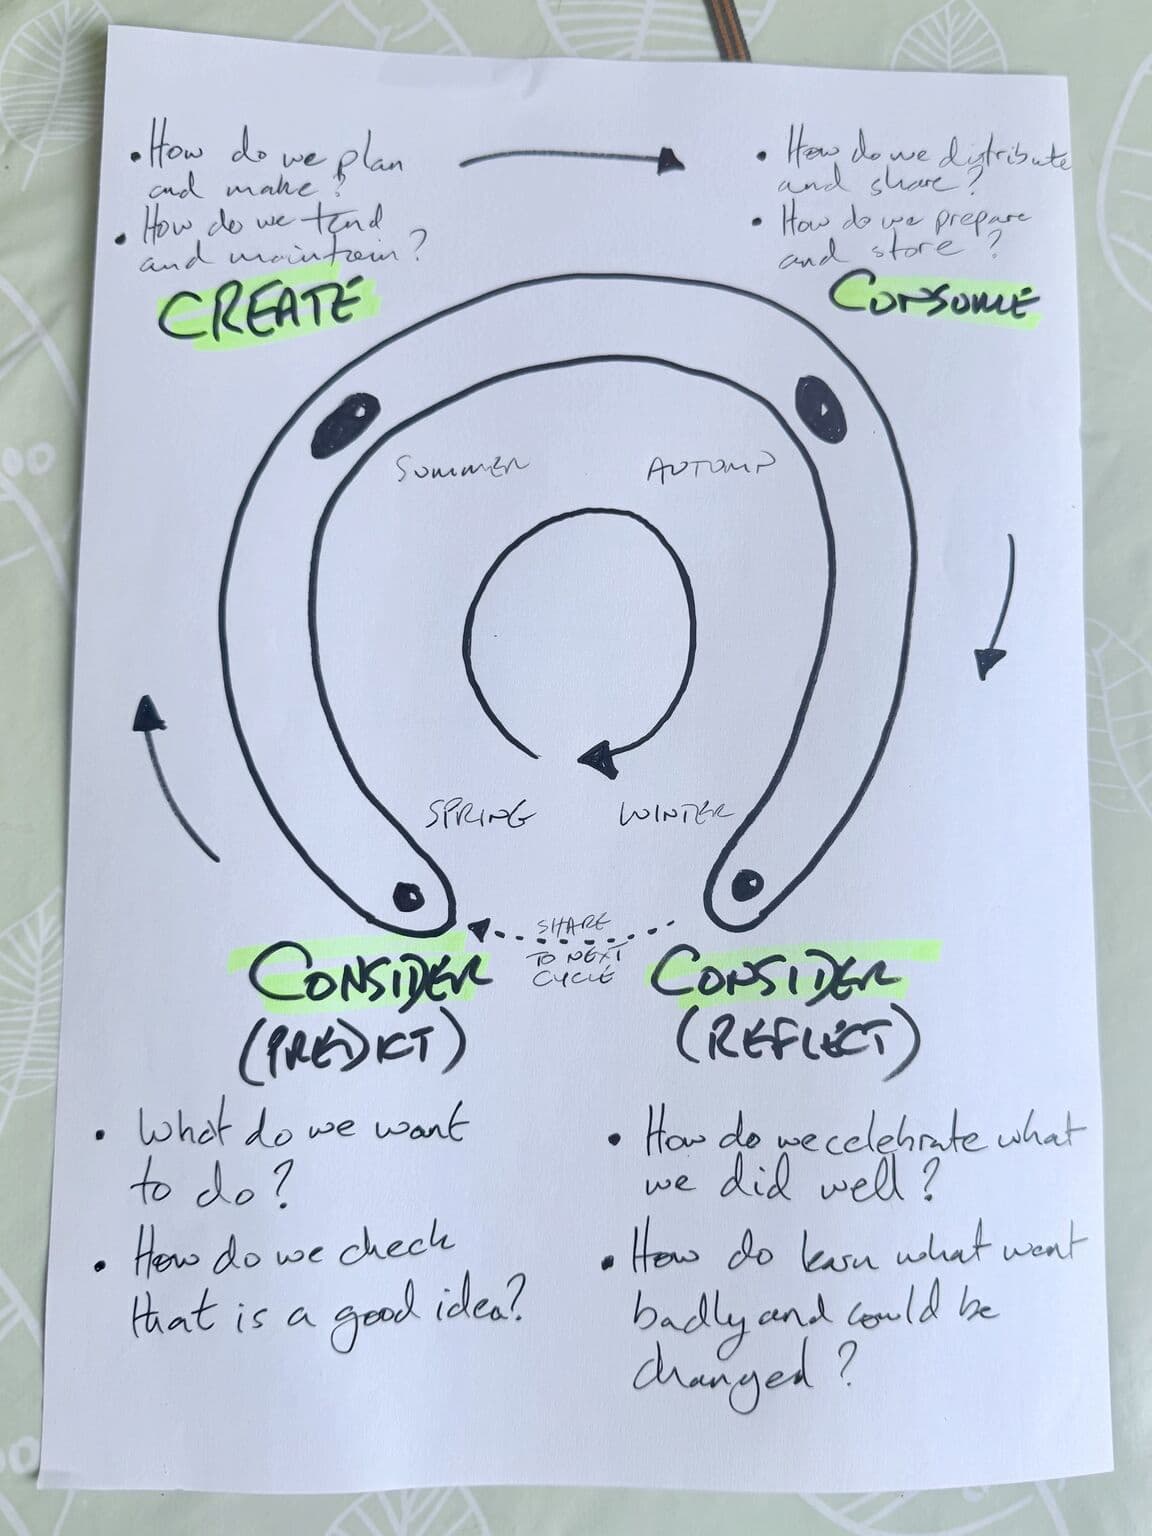 • How do we plan
and make?
• How do we tend
and maintain?
CREATE
• How do we distribute
and share?
• How do we prepare
and store?
CONSUME
SUMMER
AUTUMN
SPRING
WINTER
SHARE
TO NEXT
CYCLE
CONSIDER
(PREDICT)
• What do we want
to do?
• How do we check
that is a good idea?
CONSIDER
(REFLECT)
• How do we celebrate what
we did well?
• How do learn what went
badly and could be
changed?